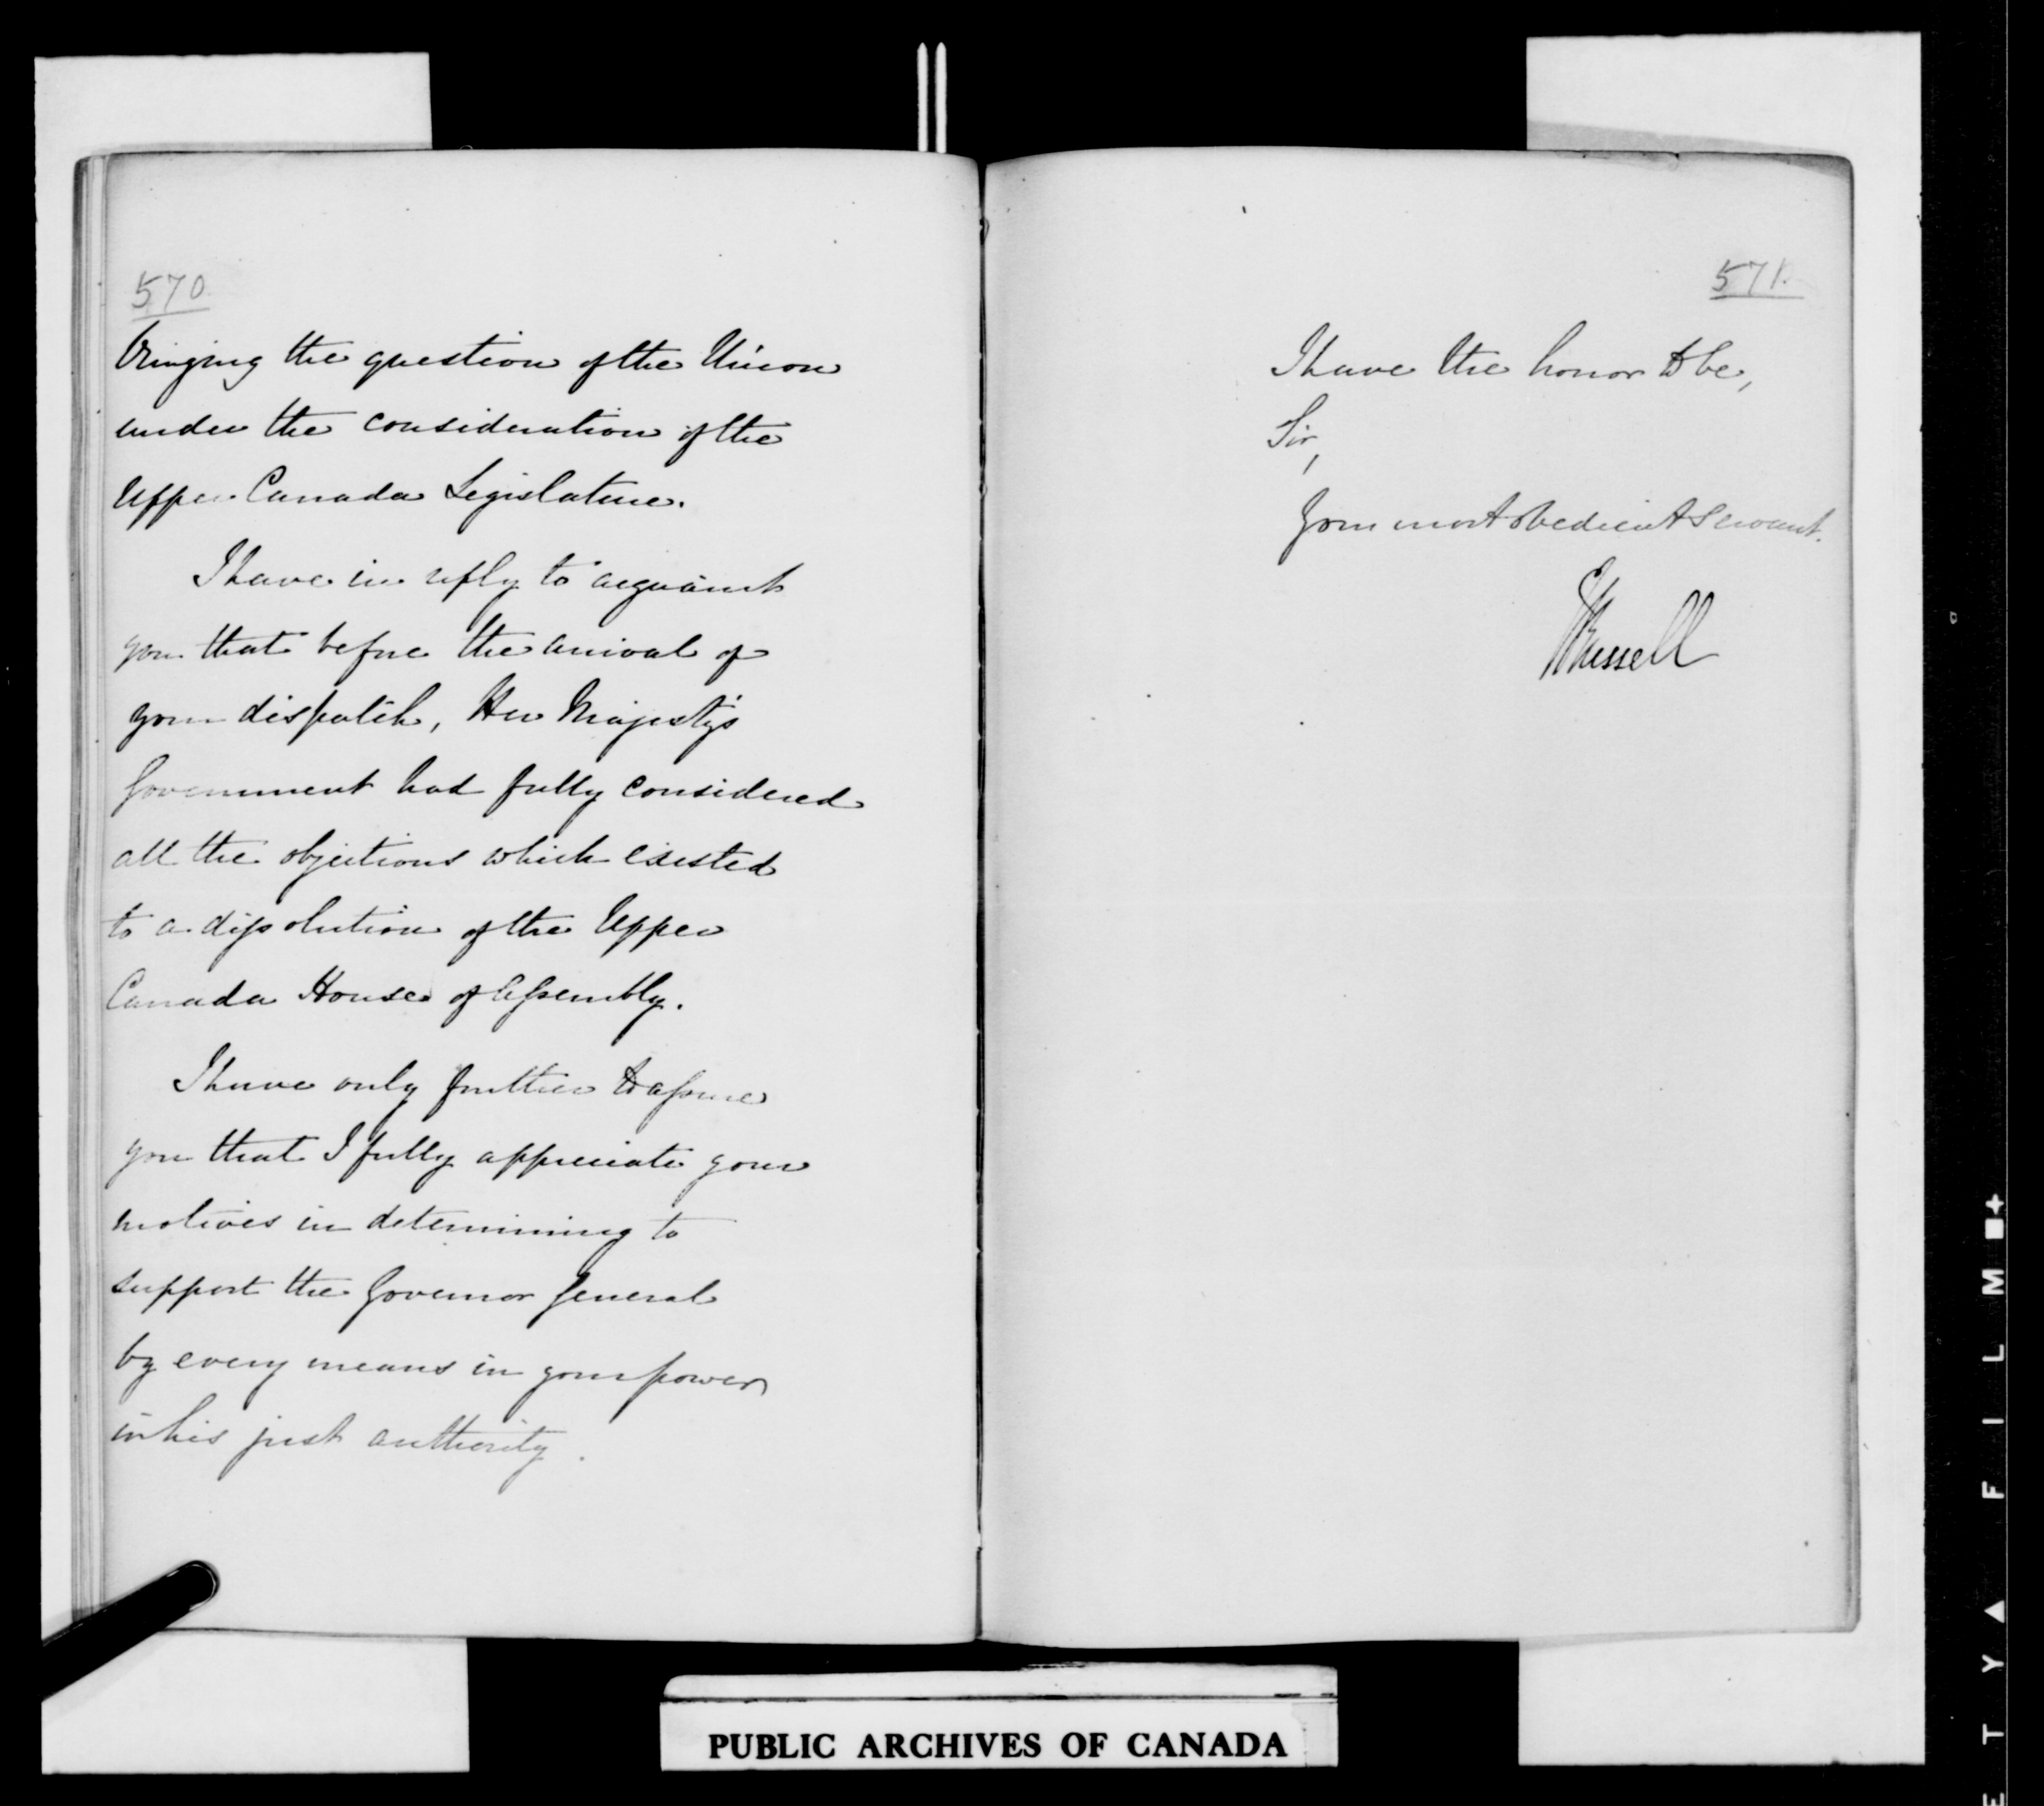 570
bringing the question of the Union
under the consideration of the
Upper Canada Legislature.
I have in reply to acquaint
you that before the arrival of
your dispatch, Her Majesty's
Government had fully considered
all the objections which existed
to a dissolution of the Upper
Canada House of Assembly.
I have only further to assure
you that I fully appreciate your
motives in determining to
support the Governor General
by every means in your power
in his just authority.
571.
I have the honor to be,
Sir,
Your most obedient Servant.
J Russell
PUBLIC ARCHIVES OF CANADA
E T Y ▲ F I L M ■+